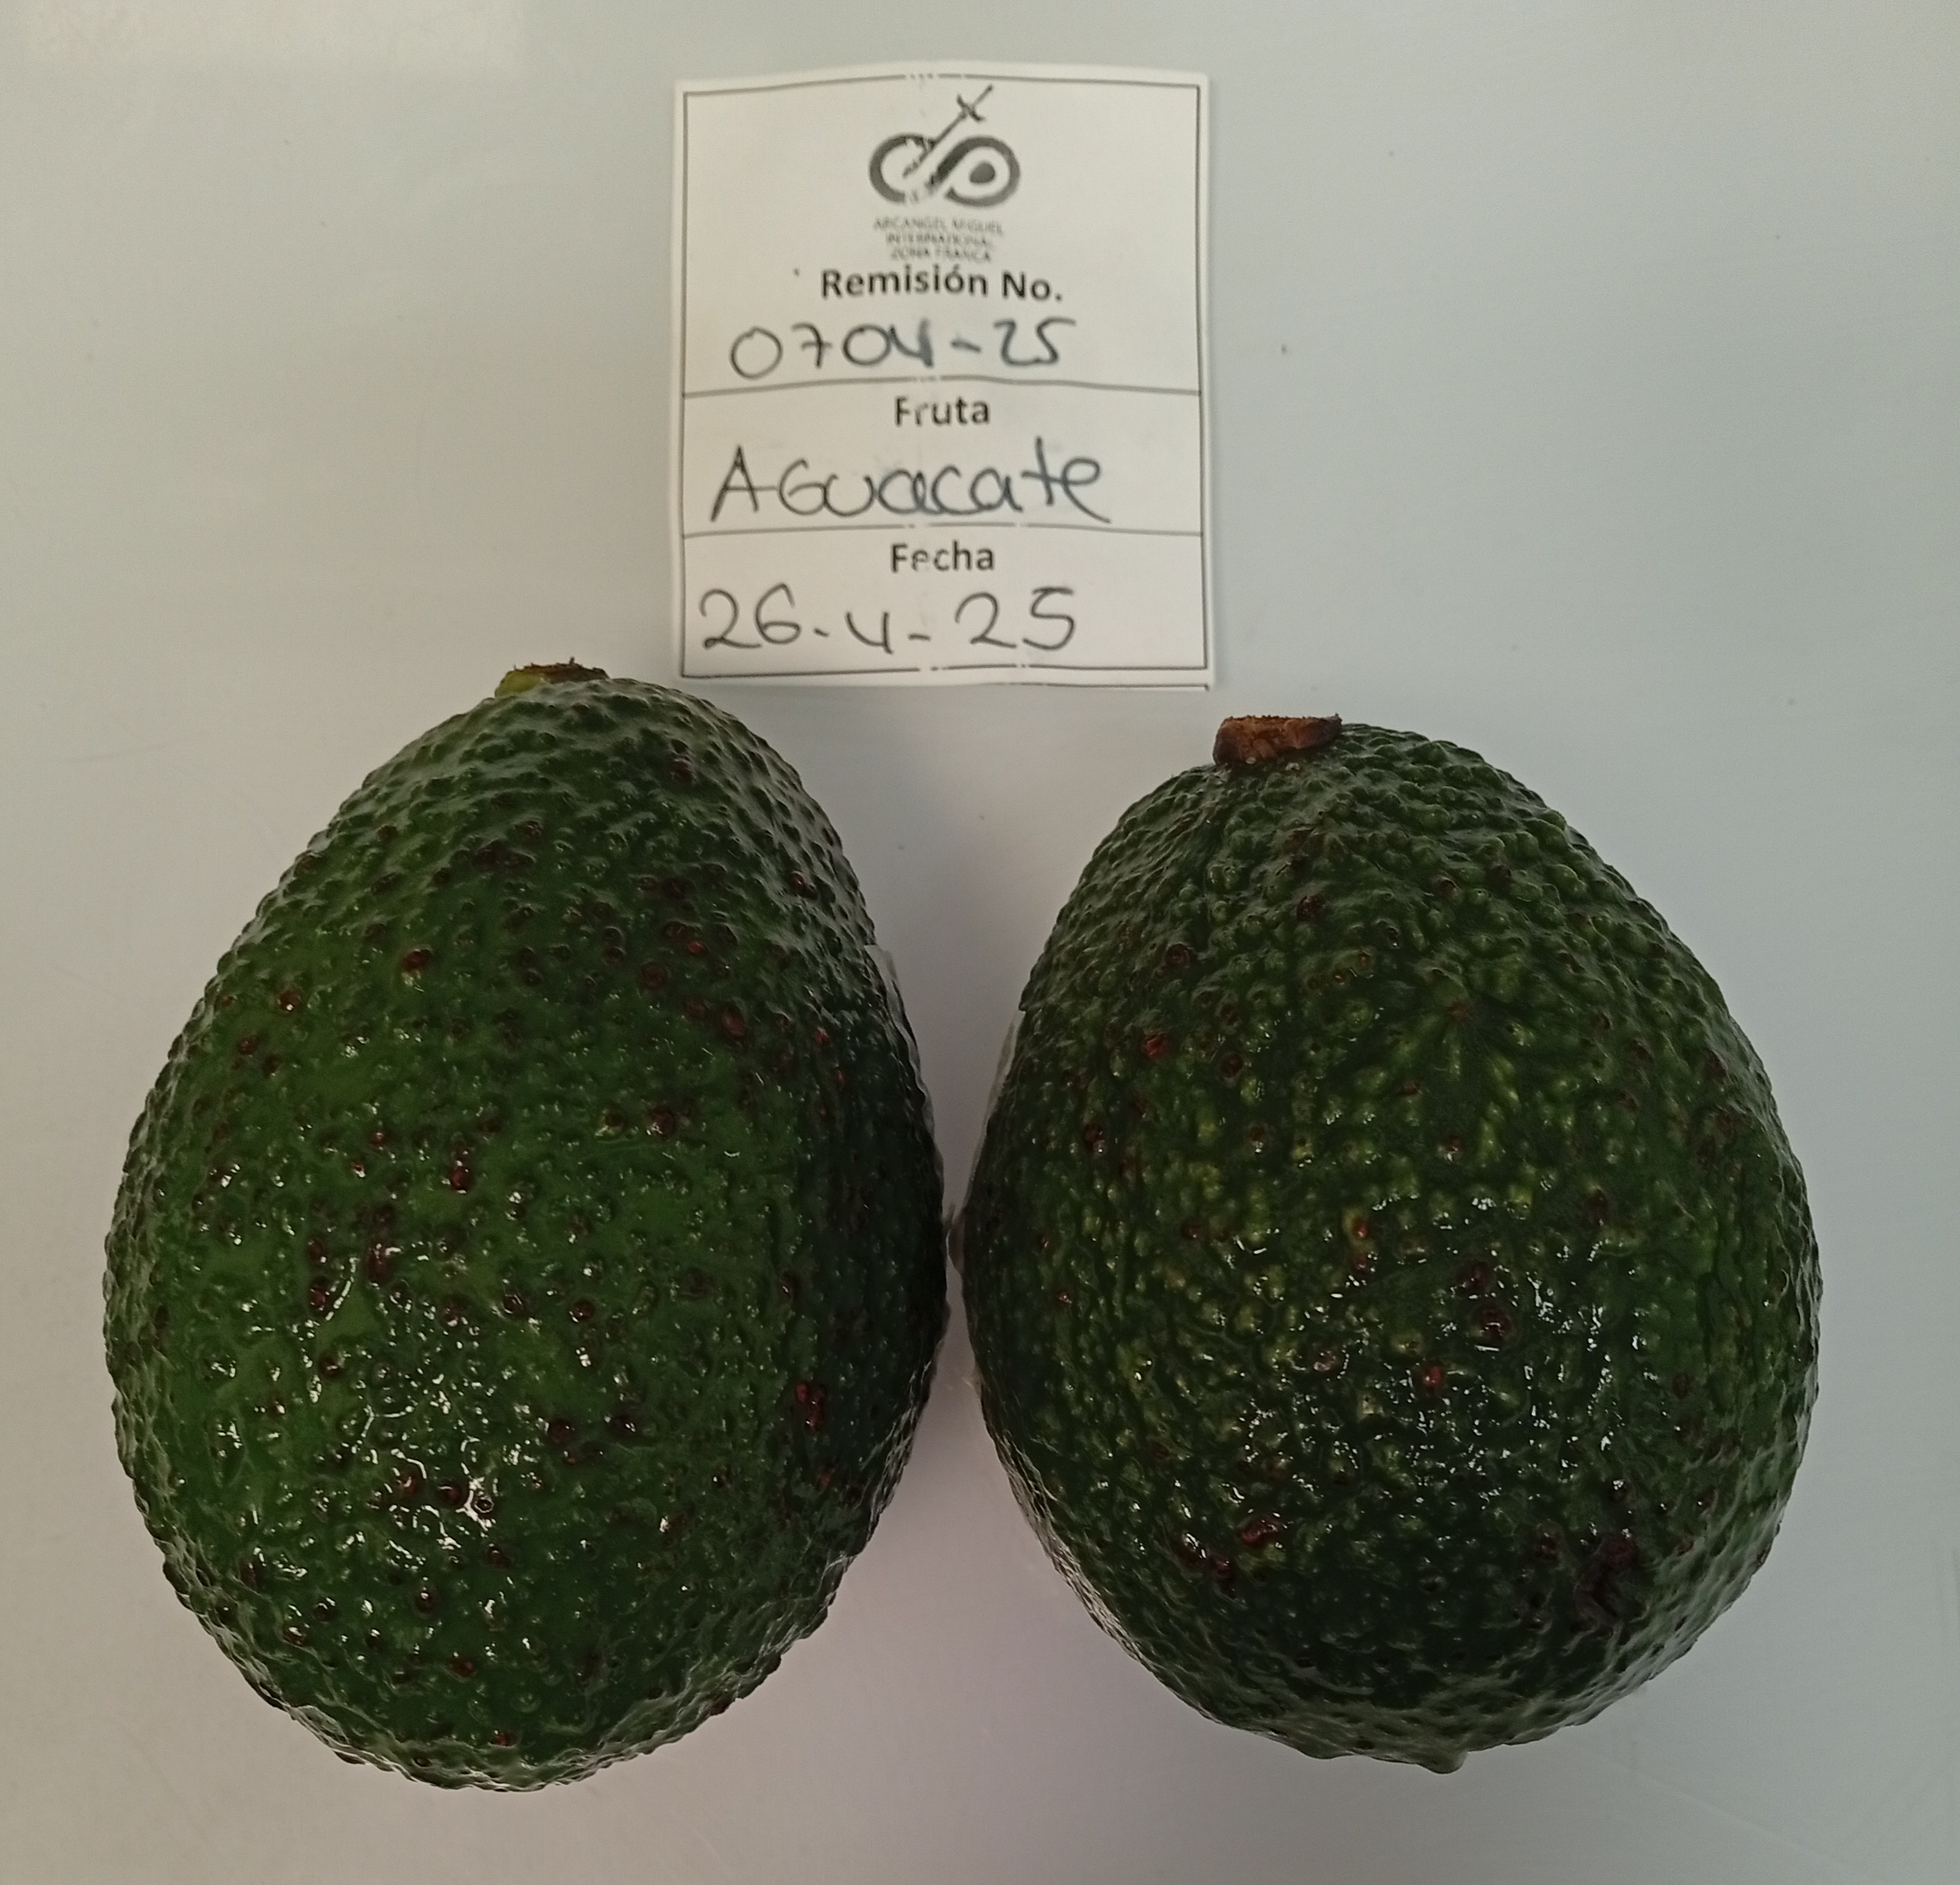 ARCANGEL MIGUEL
INTERNATIONAL
ZONA FRANCA
Remisión No.
0704-25
Fruta
AGuacate
Fecha
26-4-25